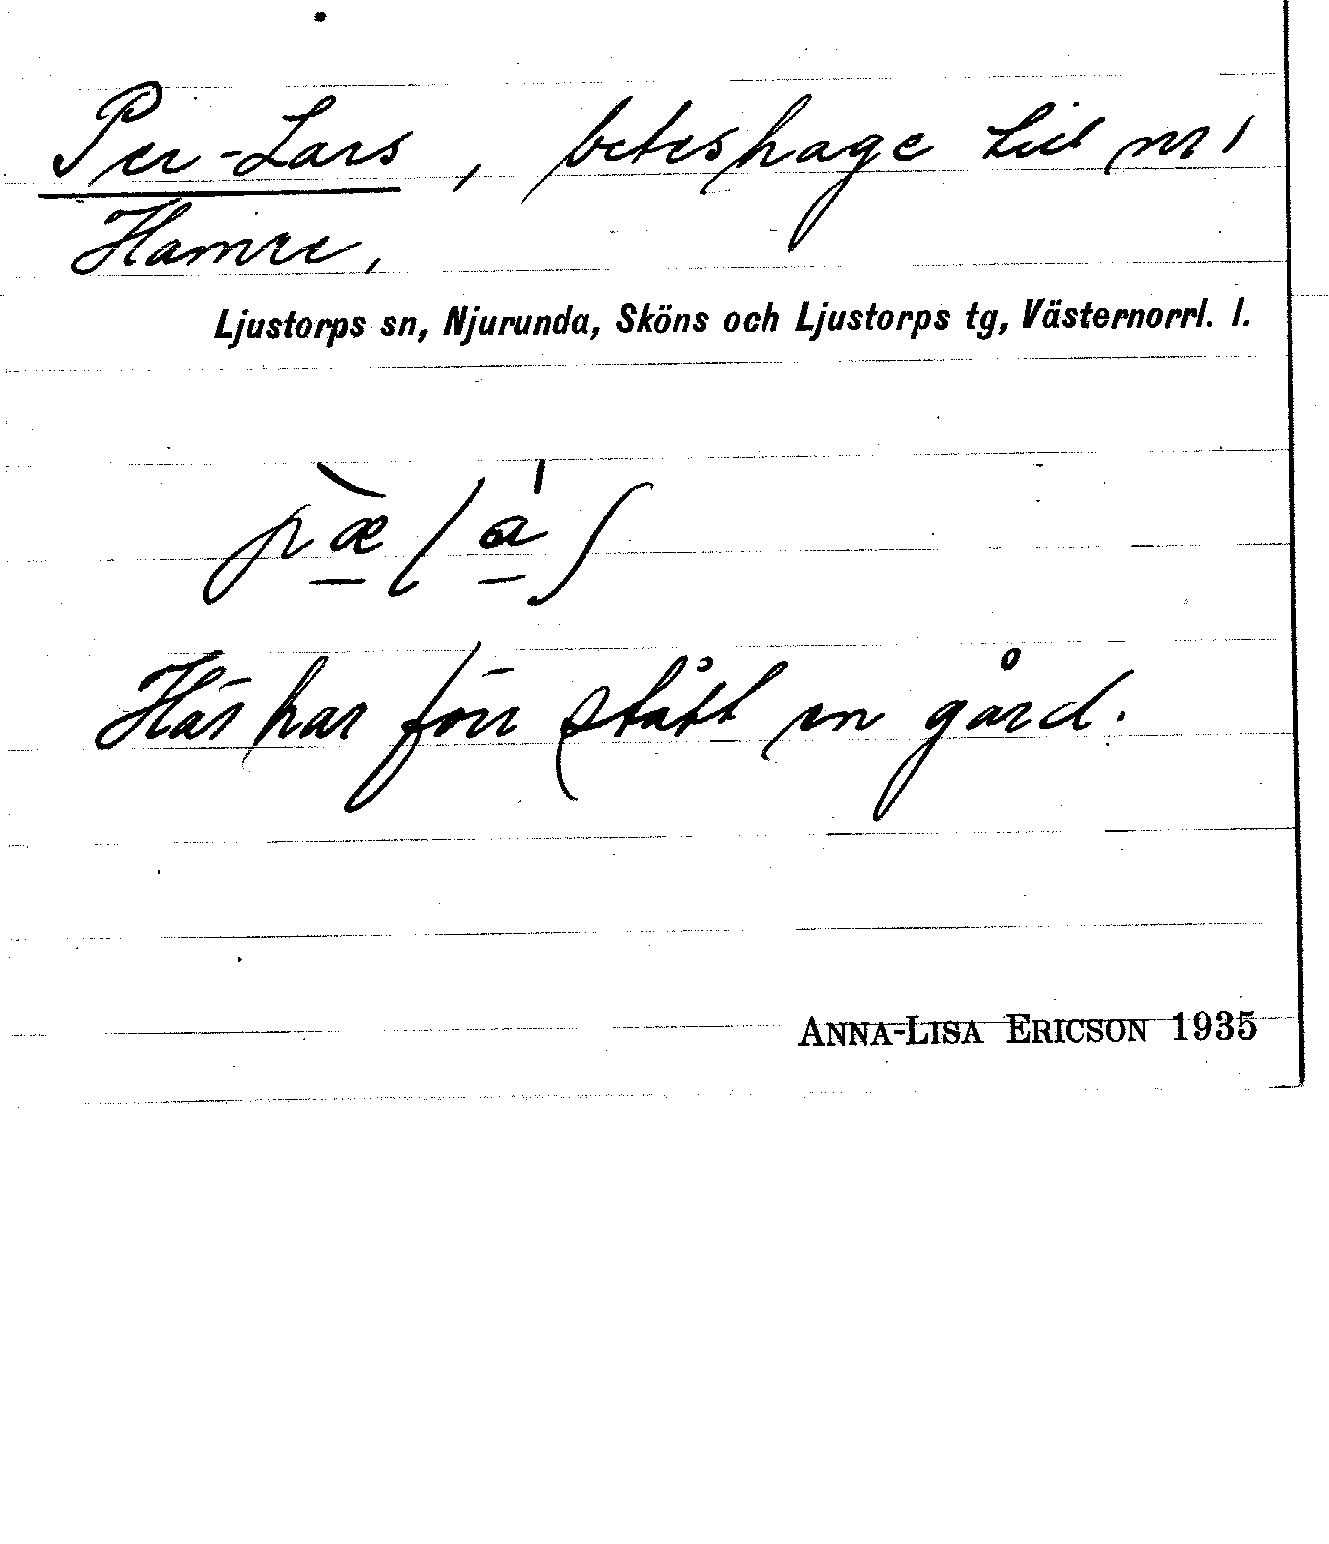 Per-Lars, beteshage till nr 1
Hamre,
Ljustorps sn, Njurunda, Sköns och Ljustorps tg, Västernorrl. l.
Här har förr stått en gård.
ANNA-LISA ERICSON 1935